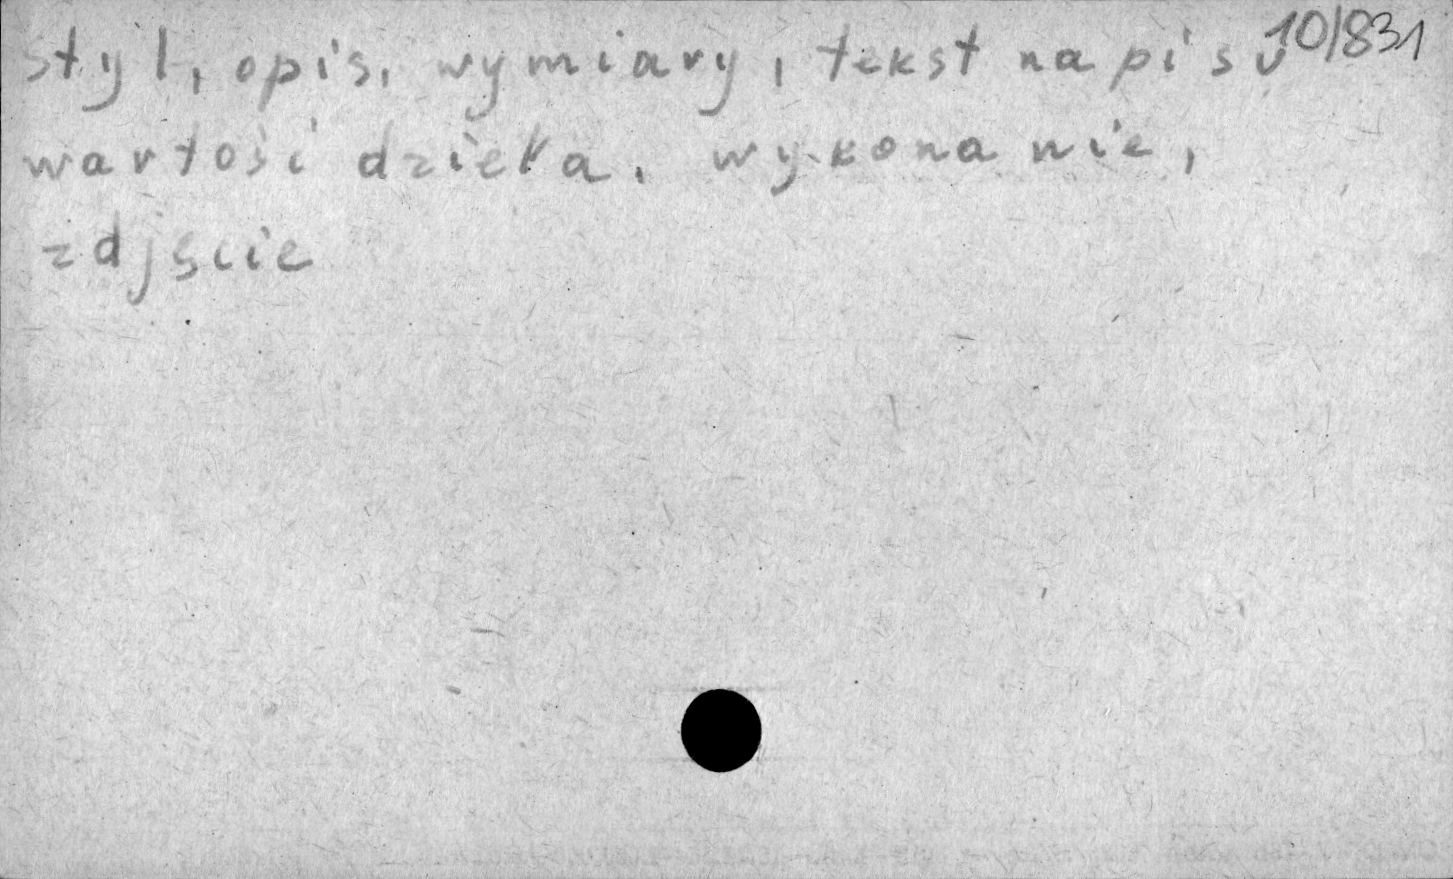 styl, opis, wymiary, tekst napisu 10/831
wartość dzieła. wykonanie,
zdjęcie